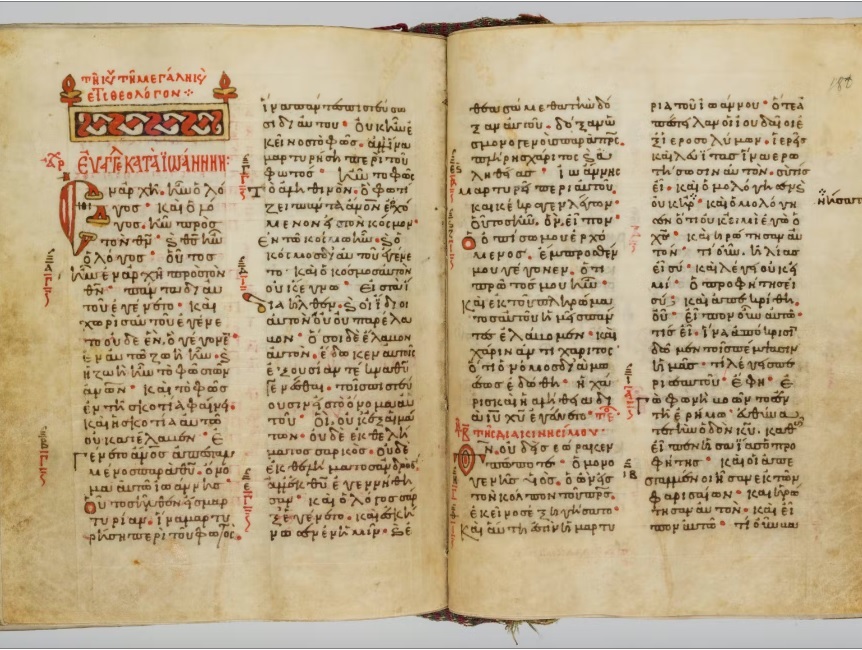 ΕΥΑΓΓΕ ΚΑΤΑ ΙΩΑΝΝΗΝ:
Ἐν ἀρχῆ ἦν ὁ λό
γος · καὶ ὁ λό
γος ἦν πρὸς
τὸν θν · κ θς ἦν
ὁ λόγος · οὗτος
ἦν ἐν ἀρχῆ πρὸς τὸν
θν · πάντα δι αὐ
τοῦ ἐγένετο · καὶ
χωρὶς αὐτοῦ ἐγένε
το οὐδὲ ἕν, ὃ γέγονε
ἐν αὐτῶ ζωὴ ἦν · κ
ἡ ζωὴ ἦν τὸ φῶς τῶν
ἀνων · καὶ τὸ φῶς
ἐν τῆ σκοτία φαίνει ·
καὶ ἡ σκοτία αὐτὸ
οὐ κατέλαβεν · ἐ
γένετο ἄνος ἀπεσταλ
μένος παρὰ θυ · ὄνο
μα αὐτῶ ἰωάννης ·
οὗτος ἦλθεν εἰς μαρ
τυρίαν · ἵνα μαρτυ
ρήση περὶ τοῦ φωτός ·
ἵνα πάντες πιστεύσω
σι δι αὐτοῦ · οὐκ ἦν ἐ
κεῖνος τὸ φῶς · ἀλλ ἵνα
μαρτυρήση περὶ τοῦ
φωτός · ἦν τὸ φῶς
τὸ ἀληθινόν · ὃ φωτί
ζει πάντα ἄνον ἐρχό
μενον εἰς τὸν κόσμον ·
ἐν τῶ κόσμω ἦν · κ ὁ
κόσμος δι αὐτοῦ ἐγένε
το · καὶ ὁ κόσμος αὐτὸν
οὐκ ἔγνω · εἰς τὰ ἴ
δια ἦλθεν · κ οἱ ἴδιοι
αὐτὸν οὐ παρέλα
βον · ὅσοι δὲ ἔλαβον
αὐτόν · ἔδωκεν αὐτοῖς
ἐξουσίαν τέκνα θυ
γενέσθαι · τοῖς πιστεύ
ουσιν εἰς τὸ ὄνομα αὐ
τοῦ · οἳ, οὐκ ἐξ αἱμά
των · οὐδὲ ἐκ θελή
ματος σαρκός · οὐδὲ
ἐκ θελήματος ἀνδρός
ἀλλ ἐκ θυ ἐγεννήθη
σαν · καὶ ὁ λόγος σὰρ
ξ ἐγένετο · καὶ ἐσκή
νωσεν ἐν ἡμῖν · κ ἐ
θεασάμεθα τὴν δό
ξαν αὐτοῦ · δόξαν ὡ
ς μονογενοῦς παρὰ πρς ·
πλήρης χάριτος κ ἀ
ληθείας · ἰωάννης
μαρτυρεῖ περὶ αὐτοῦ ·
καὶ κέκραγεν λέγων ·
οὗτος ἦν · ὃν εἶπον ·
ὁ ὀπίσω μου ἐρχό
μενος · ἔμπροσθέν
μου γέγονεν · ὅτι
πρῶτός μου ἦν ·
καὶ ἐκ τοῦ πληρώμα
τος αὐτοῦ ἡμεῖς πάν
τες ἐλάβομεν · καὶ
χάριν ἀντὶ χάριτος ·
ὅτι ὁ νόμος διὰ μω
σέως ἐδόθη · ἡ χά
ρις καὶ ἡ ἀλήθεια δι
ὰ ιυ χυ ἐγένετο ·
τῆς διακινησίμου ·
Θν οὐδεὶς ἑώρακεν
πώποτε · ὁ μονο
γενὴς υἱός · ὁ ὢν εἰς
τὸν κόλπον τοῦ πρς ·
ἐκεῖνος ἐξηγήσατο ·
καὶ αὕτη ἐστὶν ἡ μαρτυ
ρία τοῦ ἰωάννου · ὅτε ἀ
πέστειλαν οἱ ἰουδαῖοι ἐ
ξ ἱεροσολύμων · ἱερεῖς
καὶ λευίτας ἵνα ἐρω
τήσωσιν αὐτόν · σὺ τίς
εἶ · καὶ ὡμολόγησεν κ
οὐκ ἠρν · καὶ ὡμολόγη
σεν ὅτι οὐκ εἰμὶ ἐγὼ ὁ
χς · καὶ ἠρώτησαν αὐ
τόν · τί οὖν · ἠλίας
εἶ σύ · καὶ λέγει οὐκ εἰ
μί · ὁ προφήτης εἶ
σύ ; καὶ ἀπεκρίθη ·
οὔ · εἶπον οὖν αὐτῶ ·
τίς εἶ · ἵνα ἀπόκρισι
δῶμεν τοῖς πέμψασιν
ἡμᾶς · τί λέγεις πε
ρὶ σεαυτοῦ · ἔφη · ἐ
γὼ φωνὴ βοῶντος ἐν
τῆ ἐρήμω · εὐθύνα
τε τὴν ὁδὸν κυ · καθὼ
εἶπεν ἠσαΐας ὁ προ
φήτης · καὶ οἱ ἀπε
σταλμένοι ἦσαν ἐκ τῶν
φαρισαίων · καὶ ἠρώ
τησαν αὐτόν · καὶ εἶ
πον αὐτῶ · τί οὖν βα